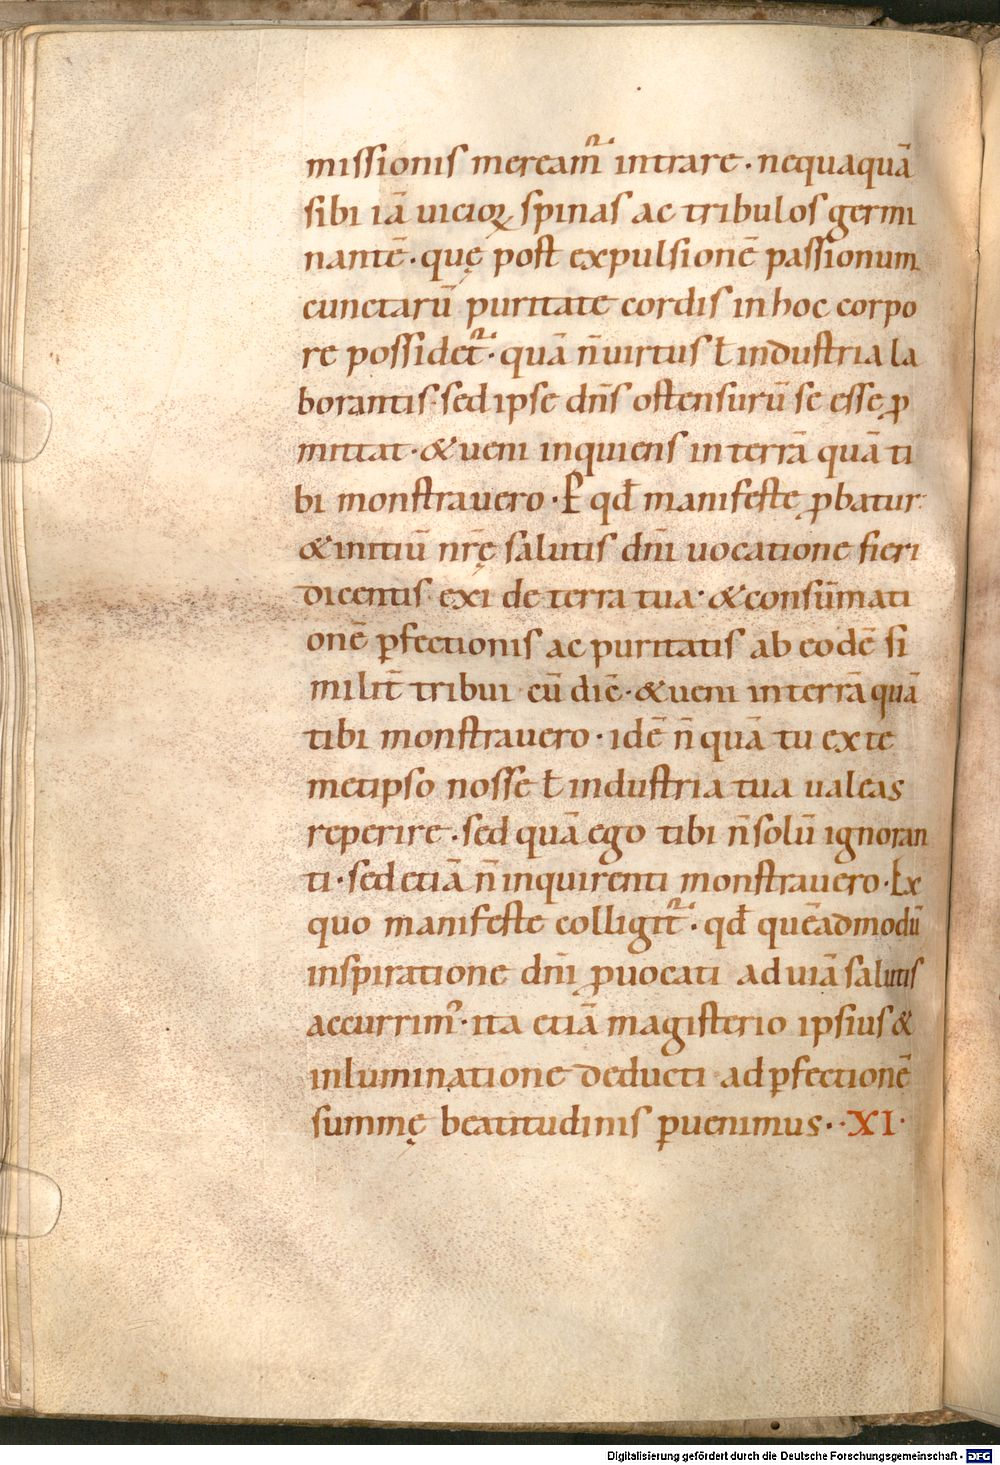 missionis mereamr̄ intrare · nequaquā
sibi iā uicioꝝ spinas ac tribulos germi
nantē · quę post expulsionē passionum
cunctarū puritate cordis in hoc corpo
re possidetr̄ · quā n̄ uirtus ł industria la
borantis · sed ipse dn̄s ostensurū se esse ꝓ
mittat · & ueni inquiens in terrā quā ti
bi monstrauero · P̲ qđ manifeste ꝓbatur
& initiū nr̄ę salutis dn̄i uocatione fieri
dicentis exi de terra tua · & consūmati
onē ꝑfectionis ac puritatis ab eodē si
milit̄ tribui cū dic̄ · & ueni in terrā quā
tibi monstrauero · idē n̄ quā tu ex te
metipso nosse ł industria tua ualeas
reperire · sed quā ego tibi n̄ solū ignoran
ti · sed etiā n̄ inquirenti monstrauero · Ex
quo manifeste colligitr̄ · qđ quēadmodū
inspiratione dn̄i ꝓuocati ad uiā salutis
accurrimꝰ · ita etiā magisterio ipsius &
inluminatione deducti ad ꝑfectionē
summę beatitudinis ꝑuenimus · · XI ·
Digitalisierung gefördert durch die Deutsche Forschungsgemeinschaft - DFG